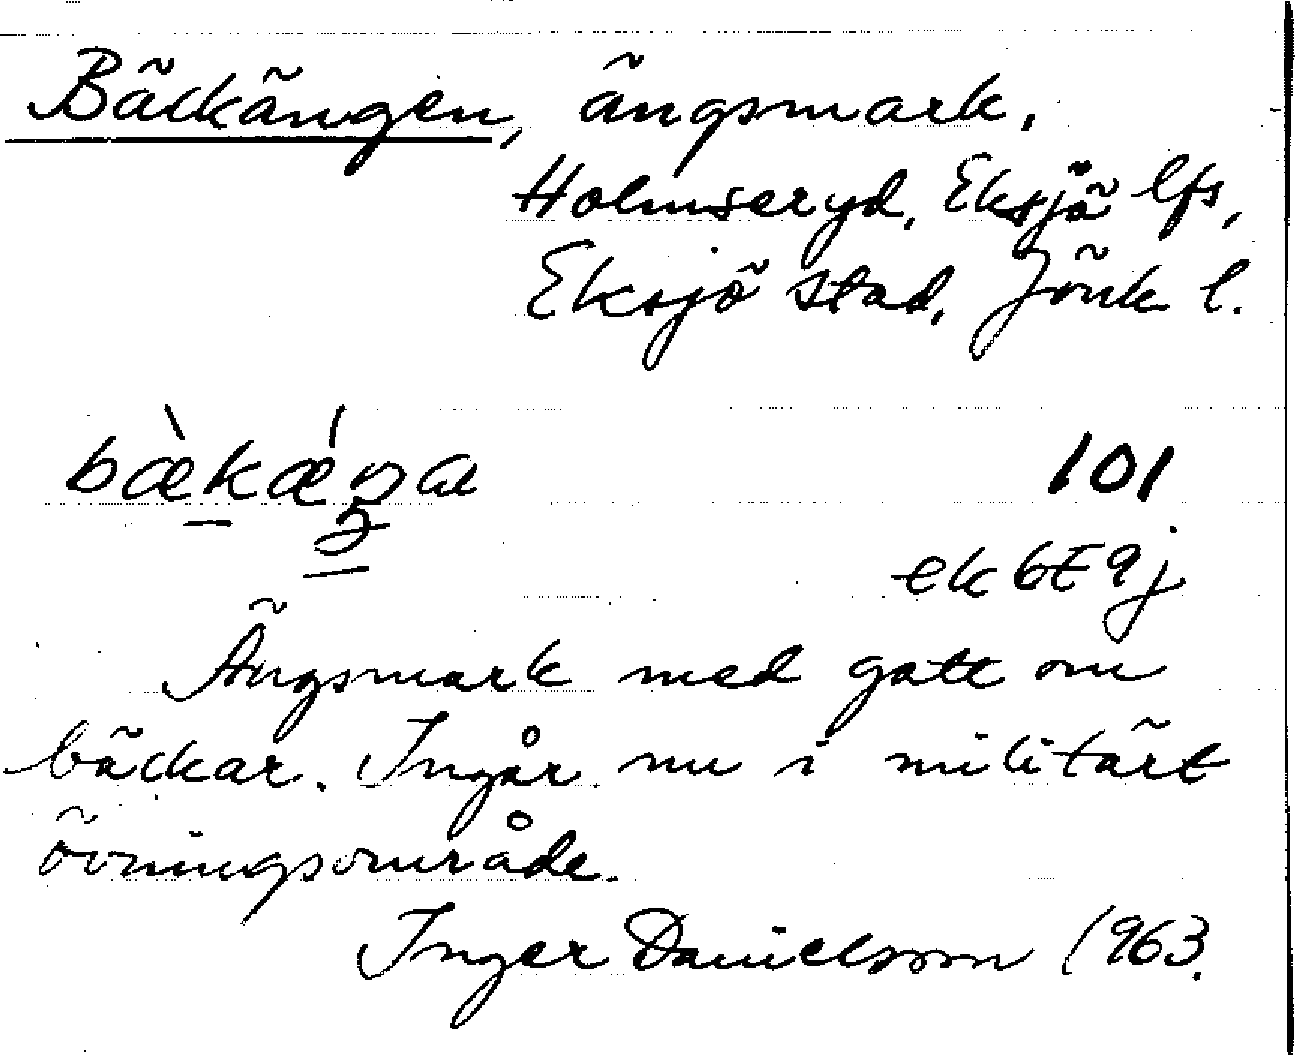 Bäckängen, ängsmark.
Holmseryd, Eksjö lfs,
Eksjö stad, Jönk l.
bæ̀kǽŋa
101
ek 6E9j
Ängsmark med gott om
bäckar. Ingår nu i militärt
övningsområde.
Inger Danielsson 1963.